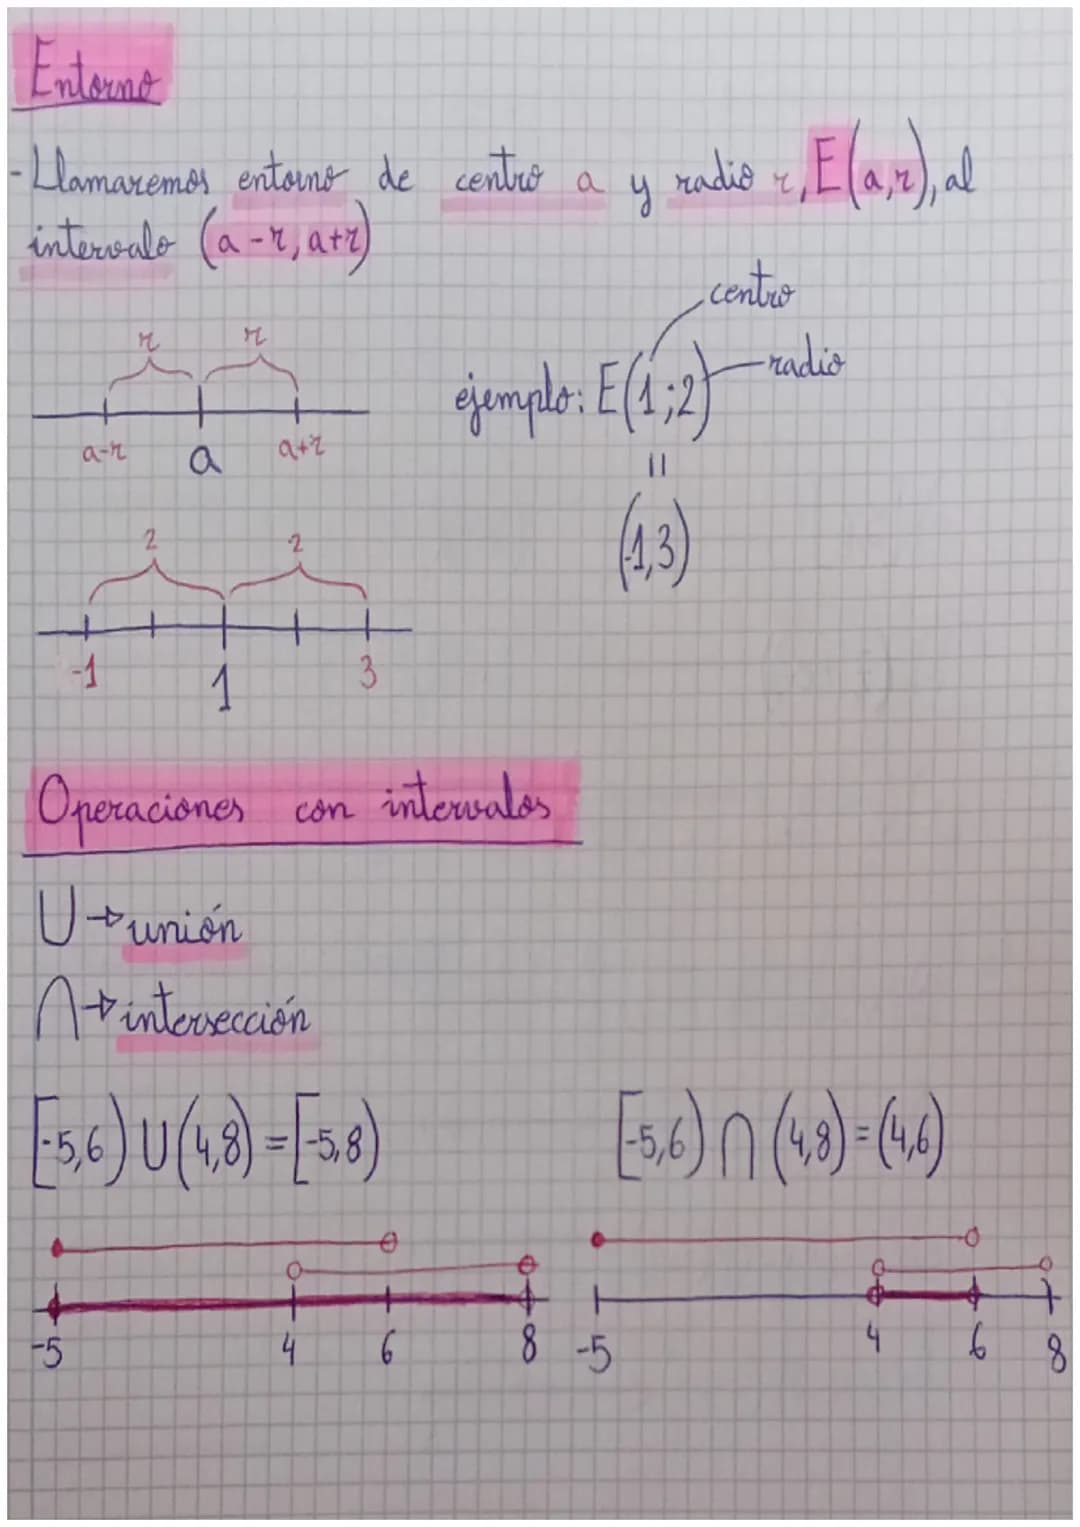 Entorno
- Llamaremos entorno de centro a y radio r, E(a,r), al
intervalo (a-r, a+r)
centro
radio
r r
ejemplo: E(1;2)
a-r a a+r
=
(-1,3)
2 2
-1 1 3
Operaciones con intervalos
U → unión
∩ → intersección
[-5,6) U (4,8) = [-5,8)
[-5,6) ∩ (4,8) = (4,6)
-5 4 6 8
-5 4 6 8